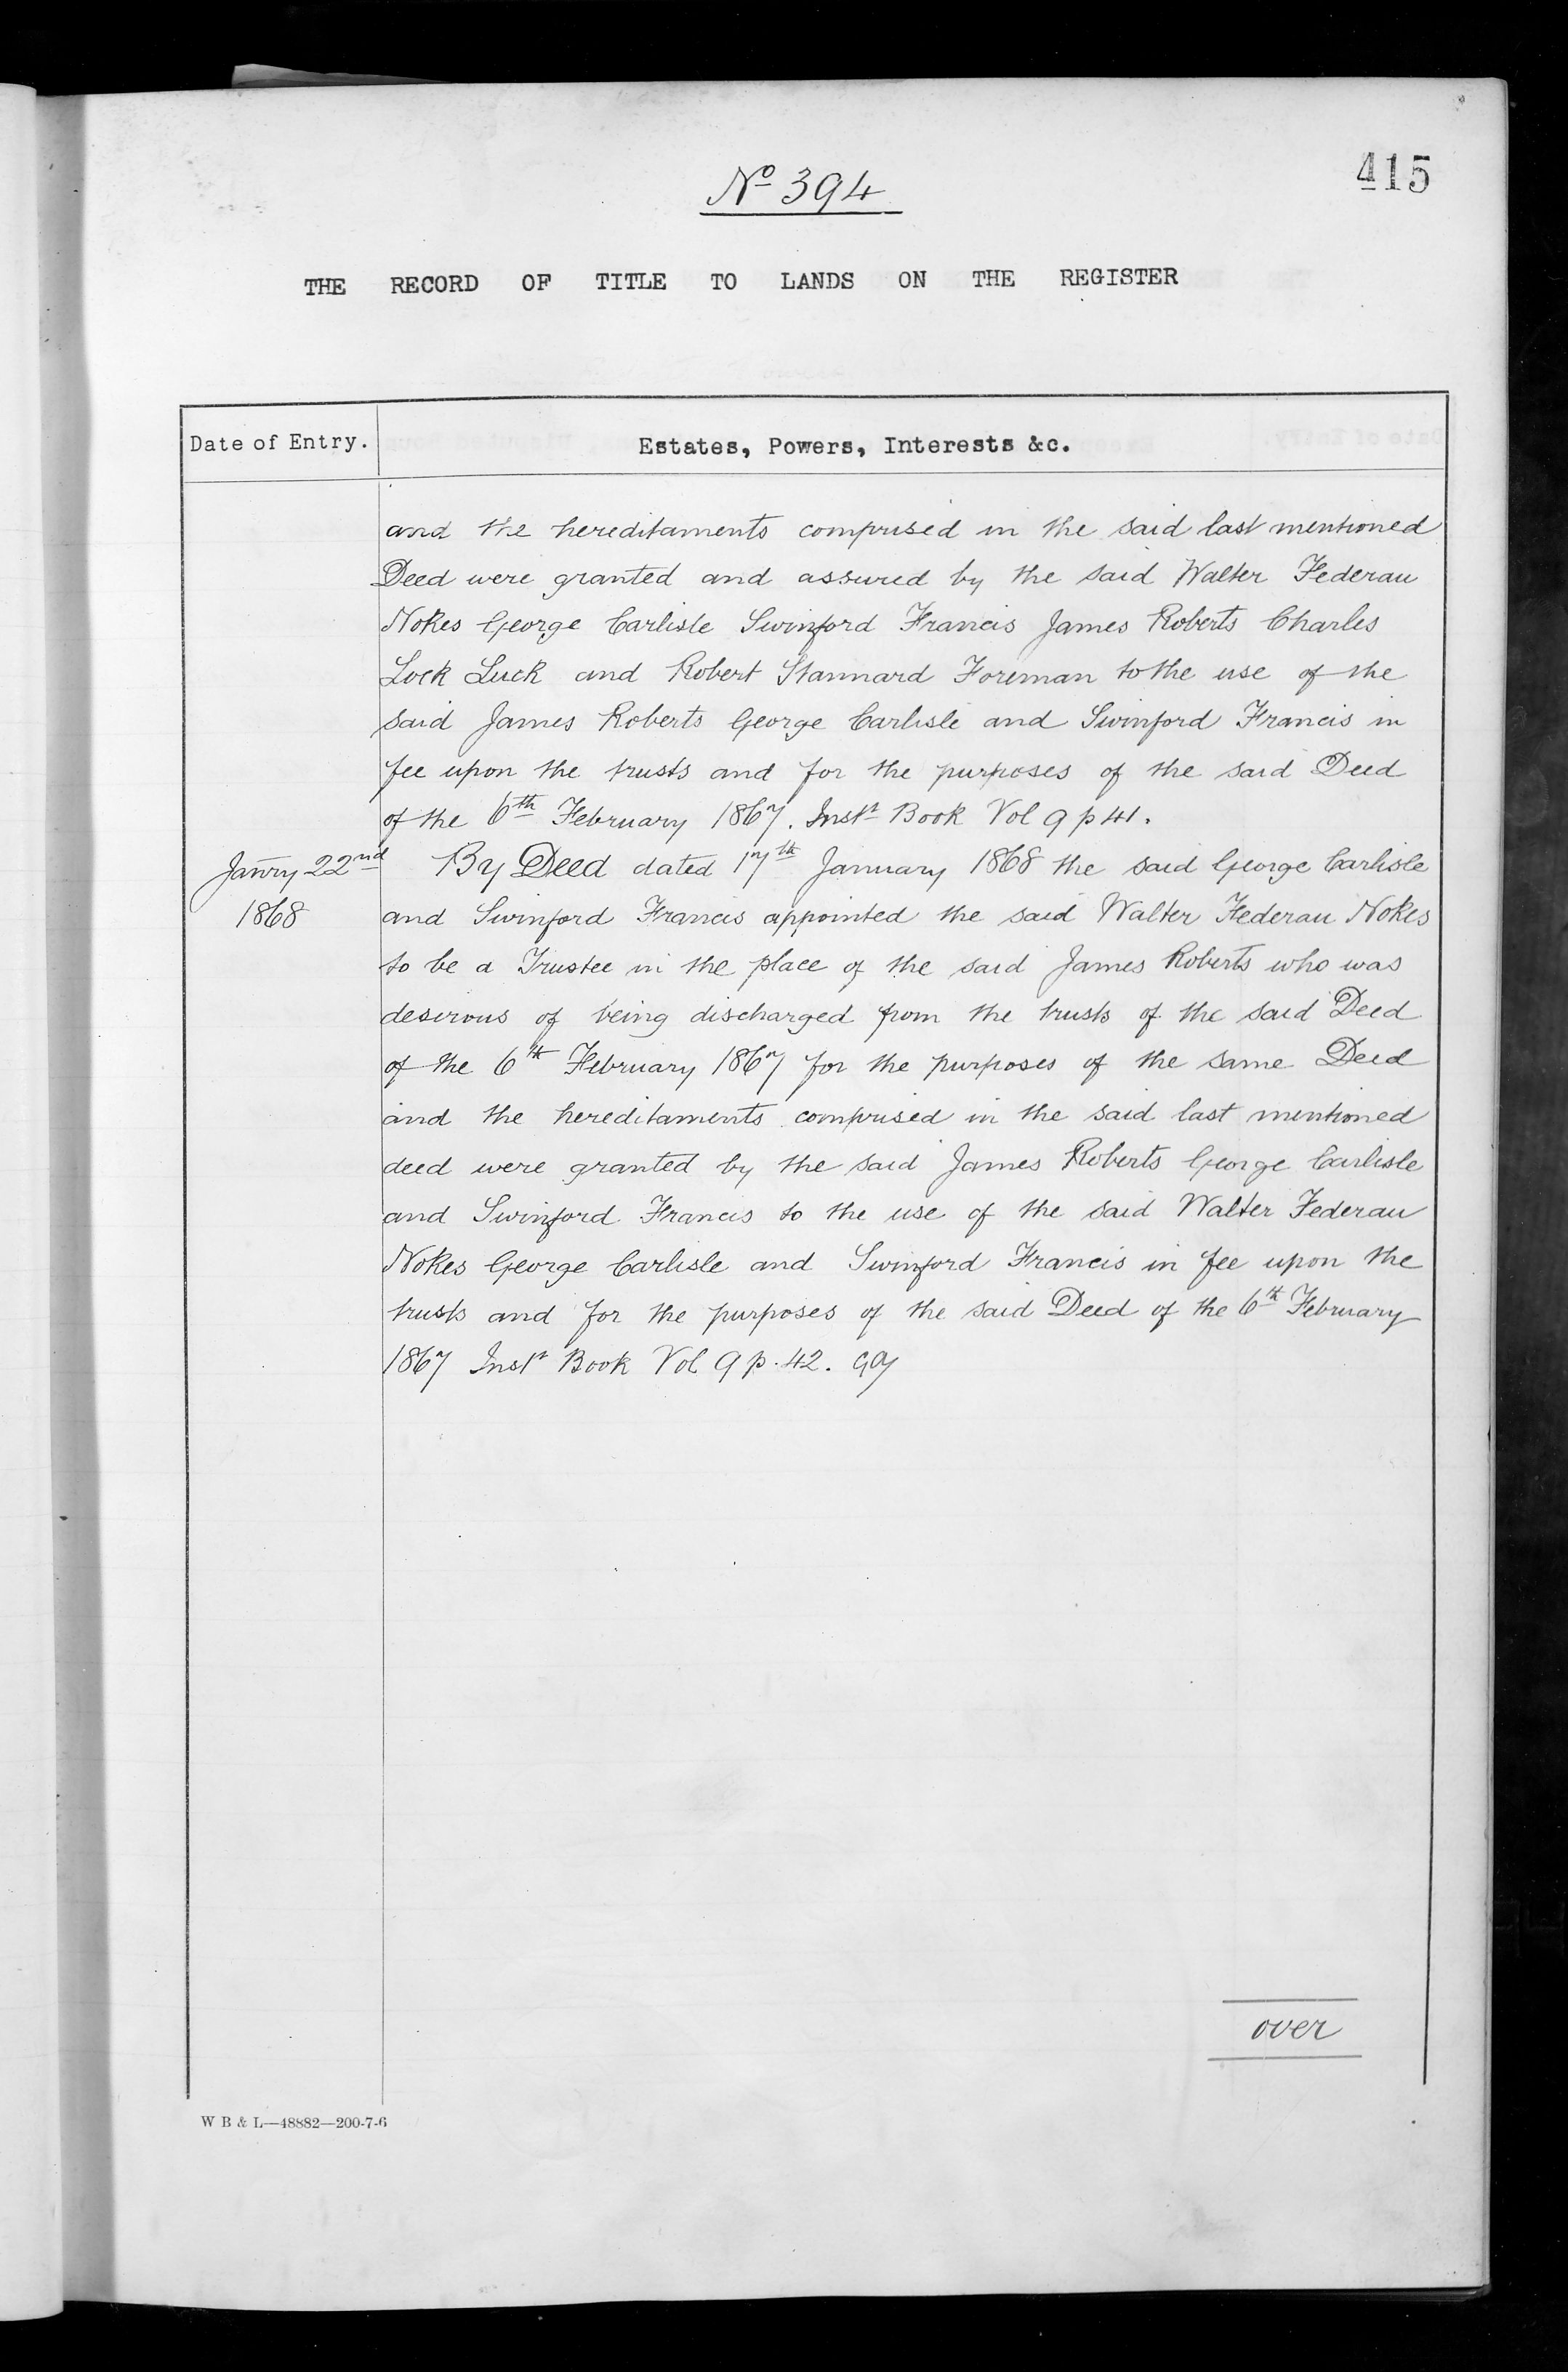 415
No 394
THE RECORD OF TITLE TO LANDS ON THE REGISTER
Date of Entry.
Estates, Powers, Interests &c.
and the hereditaments comprised in the said last mentioned
Deed were granted and assured by the said Walter Federau
Nokes George Carlisle Swinford Francis James Roberts Charles
Lock Luck and Robert Stannard Foreman to the use of the
said James Roberts George Carlisle and Swinford Francis in
fee upon the trusts and for the purposes of the said Deed
of the 6th February 1867. Inst Book Vol 9 p 41.
Janry 22nd
1868
By Deed dated 17th January 1868 the said George Carlisle
and Swinford Francis appointed the said Walter Federau Nokes
to be a Trustee in the place of the said James Roberts who was
desirous of being discharged from the trusts of the said Deed
of the 6th February 1867 for the purposes of the same Deed
and the hereditaments comprised in the said last mentioned
deed were granted by the said James Roberts George Carlisle
and Swinford Francis to the use of the said Walter Federau
Nokes George Carlisle and Swinford Francis in fee upon the
trusts and for the purposes of the said Deed of the 6th February
1867 Inst Book Vol 9 p. 42.
over
W B & L—48882—200-7-6